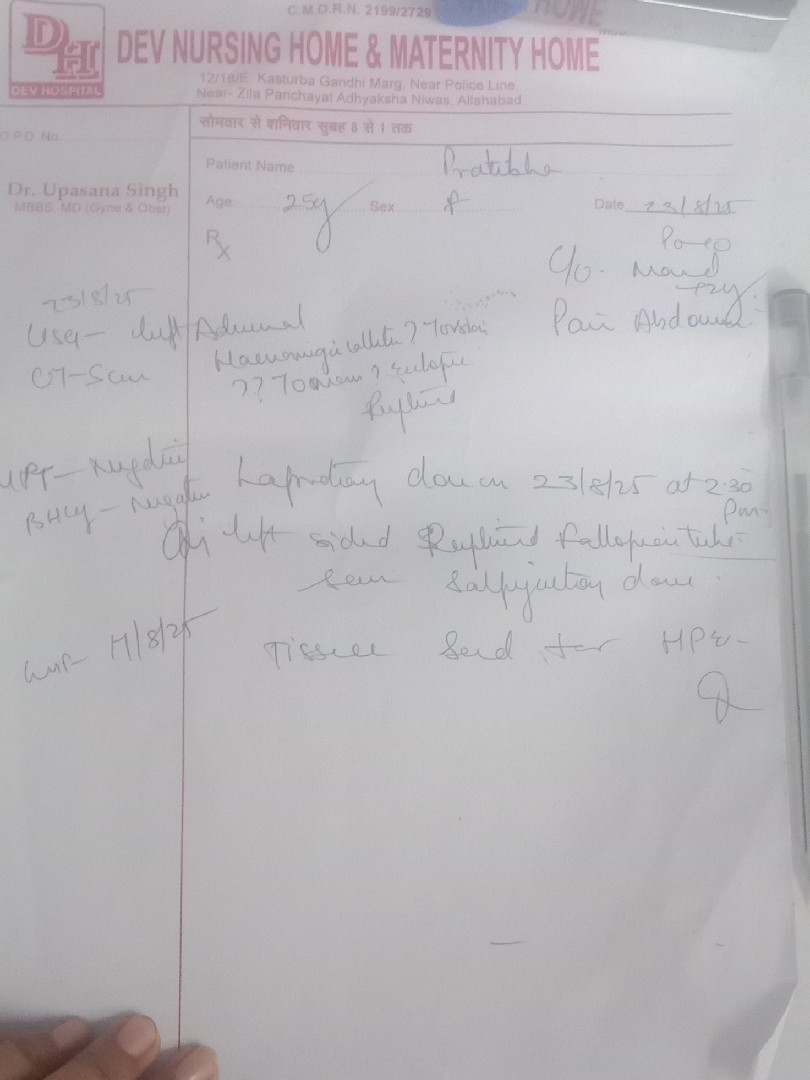 C.M.O.R.N. 2199/2729
HOME
DH
DEV HOSPITAL
DEV NURSING HOME & MATERNITY HOME
12/18/E Kasturba Gandhi Marg, Near Police Line,
Near- Zila Panchayat Adhyaksha Niwas, Allahabad
सोमवार से शनिवार सुबह 8 से 1 तक
O.P.D. No
Patient Name Pratibha
Dr. Upasana Singh
MBBS, MD (Gyne & Obst)
Age 25y Sex f Date 23/8/25
Rx
C/o.
Pain Abdomen
23/8/25
USG- left Adnexal
CT-Scan
Ruptured
UPT- Negative
BHCG- Negative
Laprotomy done on 23/8/25 at 2.30
Pm
left sided Ruptured fallopian tube
seen Salpijectomy done.
LMP- 11/8/25
Tissue Send for HPE-